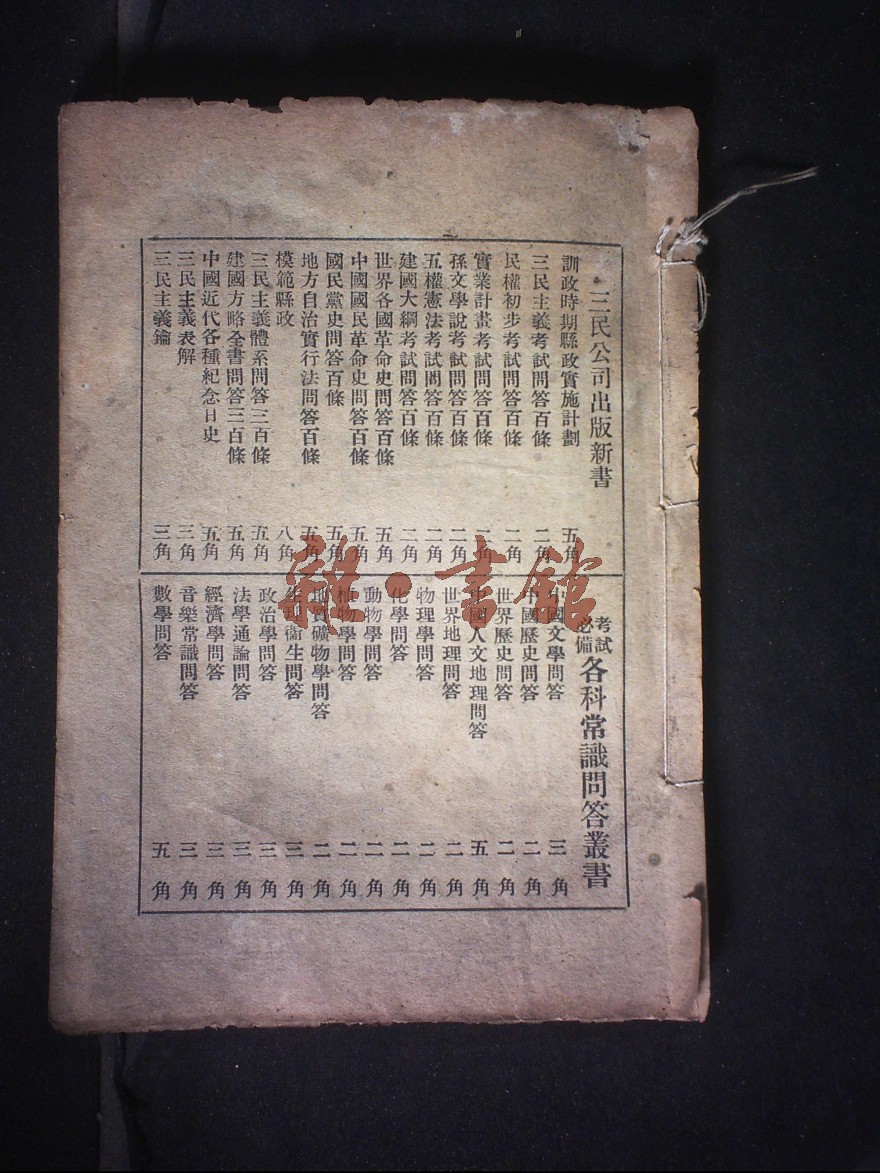 三民公司出版新書
訓政時期縣政實施計劃 五角
三民主義考試問答百條 二角
民權初步考試問答百條 二角
實業計畫考試問答百條 二角
孫文學說考試問答百條 二角
五權憲法考試問答百條 二角
建國大綱考試問答百條 二角
世界各國革命史問答百條 五角
中國國民革命史問答百條 五角
國民黨史問答百條 五角
地方自治實行法問答百條 五角
模範縣政 八角
三民主義體系問答三百條 五角
建國方略全書問答三百條 五角
中國近代各種紀念日史 五角
三民主義表解 三角
三民主義鑰 三角
考試必備 各科常識問答叢書
中國文學問答 三角
中國歷史問答 二角
世界歷史問答 二角
中國人文地理問答 五角
世界地理問答 二角
物理學問答 二角
化學問答 二角
動物學問答 二角
植物學問答 二角
地質礦物學問答 二角
生理衞生問答 三角
政治學問答 三角
法學通論問答 三角
經濟學問答 三角
音樂常識問答 三角
數學問答 五角
雜·書館